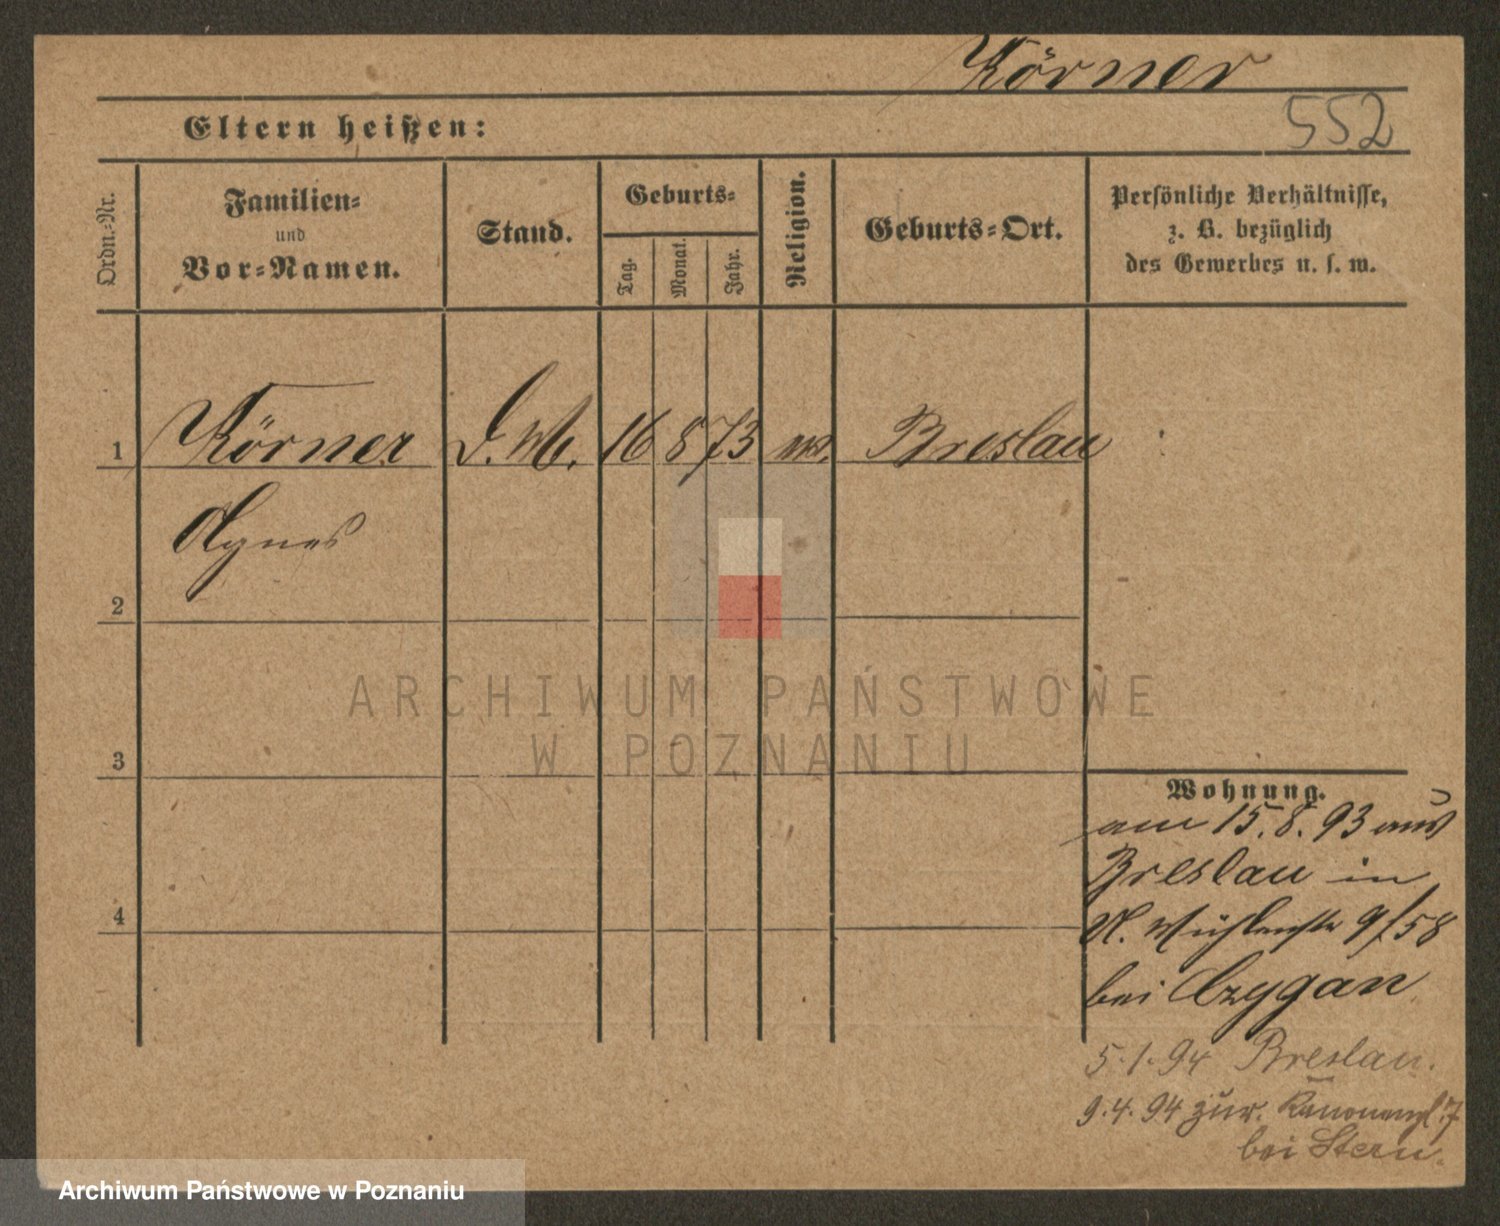 Körner
552
Eltern heißen:
Ordn.-Nr.
Familien-
und
Vor-Namen.
Stand.
Geburts-
Tag.
Monat.
Jahr.
Religion.
Geburts-Ort.
Persönliche Verhältnisse,
z. B. bezüglich
des Gewerbes u. s. w.
1 Körner 16 8 73 Breslau
Agnes
2
3
4
Wohnung.
am 15.8.93 aus
Breslau in
9/58
bei Czygan
5.1.94 Breslau.
9.4.94 zur. Kanonenpl. 7
bei Stern.
ARCHIWUM PAŃSTWOWE
W POZNANIU
Archiwum Państwowe w Poznaniu